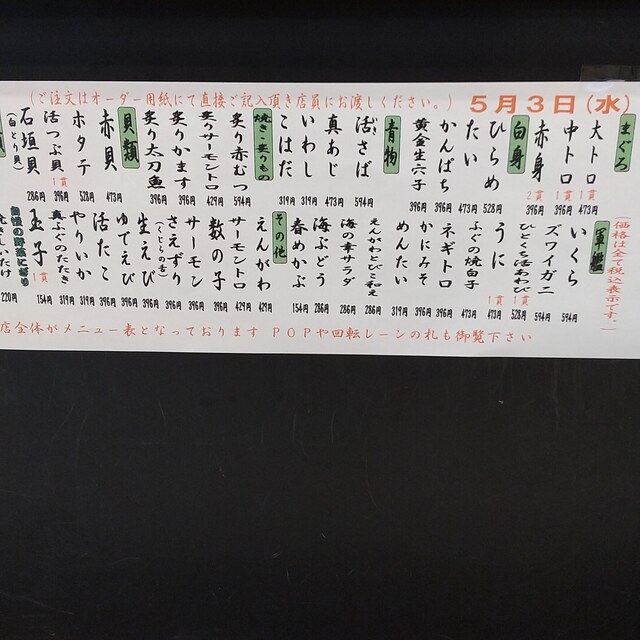 (ご注文はオーダー用紙にて直接ご記入頂き店員にお渡しください。) 5月3日(水)
まぐろ
大トロ 473円
中トロ 1貫 396円
赤身 2貫 396円
白身
ひらめ 528円
たい 473円
かんぱち 396円
黄金生六子 396円
青物
活さば 594円
真あじ 473円
いわし 319円
こはだ 319円
焼き・炙りもの
炙り赤むつ 594円
炙りサーモントロ 429円
炙りかます 396円
炙り太刀魚 396円
貝類
赤貝 473円
ホタテ 528円
活つぶ貝 1貫 396円
石垣貝 (白とり貝) 286円
(価格は全て税込表示です。)
軍艦
いくら 594円
ズワイガニ 594円
ひとくち活あわび 1貫 528円
うに 1貫 473円
ふぐの焼白子 473円
ネギトロ 396円
かにみそ 396円
めんたい 319円
えんがわとびこ和え 286円
海の幸サラダ 286円
海ぶどう 286円
春めかぶ 154円
その他
えんがわ 429円
サーモントロ 429円
数の子 396円
サーモン 396円
さえずり (くじらの舌) 396円
生えび 396円
ゆでえび 396円
活たこ 396円
やりいか 319円
真ふぐのたたき 319円
玉子 1貫 154円
220円
店全体がメニュー表となっております POPや回転レーンの札も御覧下さい